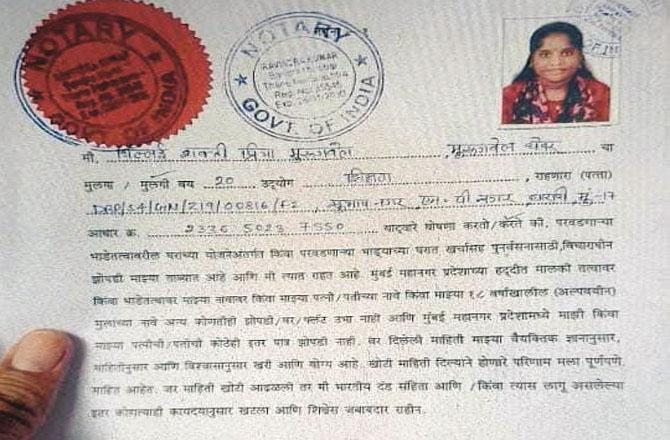 NOTARY
NOTARY
RAVINDRA KUMAR
GOVT. OF INDIA
मी. पिल्लई शक्ती प्रिया मुरुगवेल मुरुगवेल यांचा
मुलगा / मुलगी वय 20 उद्योग शिक्षण , राहणारा (पत्ता)
DRP/S4/GN/219/00816/F2, सुभाष नगर एम. पी नगर धारावी मुं-17
आधार क्र. 2326 5023 7550 याद्वारे घोषणा करतो/करते की, परवडणाऱ्या
भाडेतत्वावरील घराच्या योजनेअंतर्गत किंवा परवडणाऱ्या भाड्याच्या घरात खर्चासह पुनर्वसनासाठी, विचाराधीन
झोपडी माझ्या ताब्यात आहे आणि मी त्यात राहत आहे. मुंबई महानगर प्रदेशाच्या हद्दीत मालकी तत्वावर
किंवा भाडेतत्वावर माझ्या नावावर किंवा माझ्या पत्नी/पतीच्या नावे किंवा माझ्या १८ वर्षाखालील (अल्पवयीन)
मुलांच्या नावे अन्य कोणतीही झोपडी/घर/फ्लॅट उभा नाही आणि मुंबई महानगर प्रदेशामध्ये माझी किंवा
माझ्या पत्नीची/पतीची कोठेही इतर पात्र झोपडी नाही. वर दिलेली माहिती माझ्या वैयक्तिक ज्ञानानुसार,
माहितीनुसार आणि विश्वासानुसार खरी आणि योग्य आहे. खोटी माहिती दिल्याने होणारे परिणाम मला पूर्णपणे
माहित आहेत. जर माहिती खोटी आढळली तर मी भारतीय दंड संहिता आणि /किंवा त्यास लागू असलेल्या
इतर कोणत्याही कायद्यानुसार खटला आणि शिक्षेस जबाबदार राहीन.